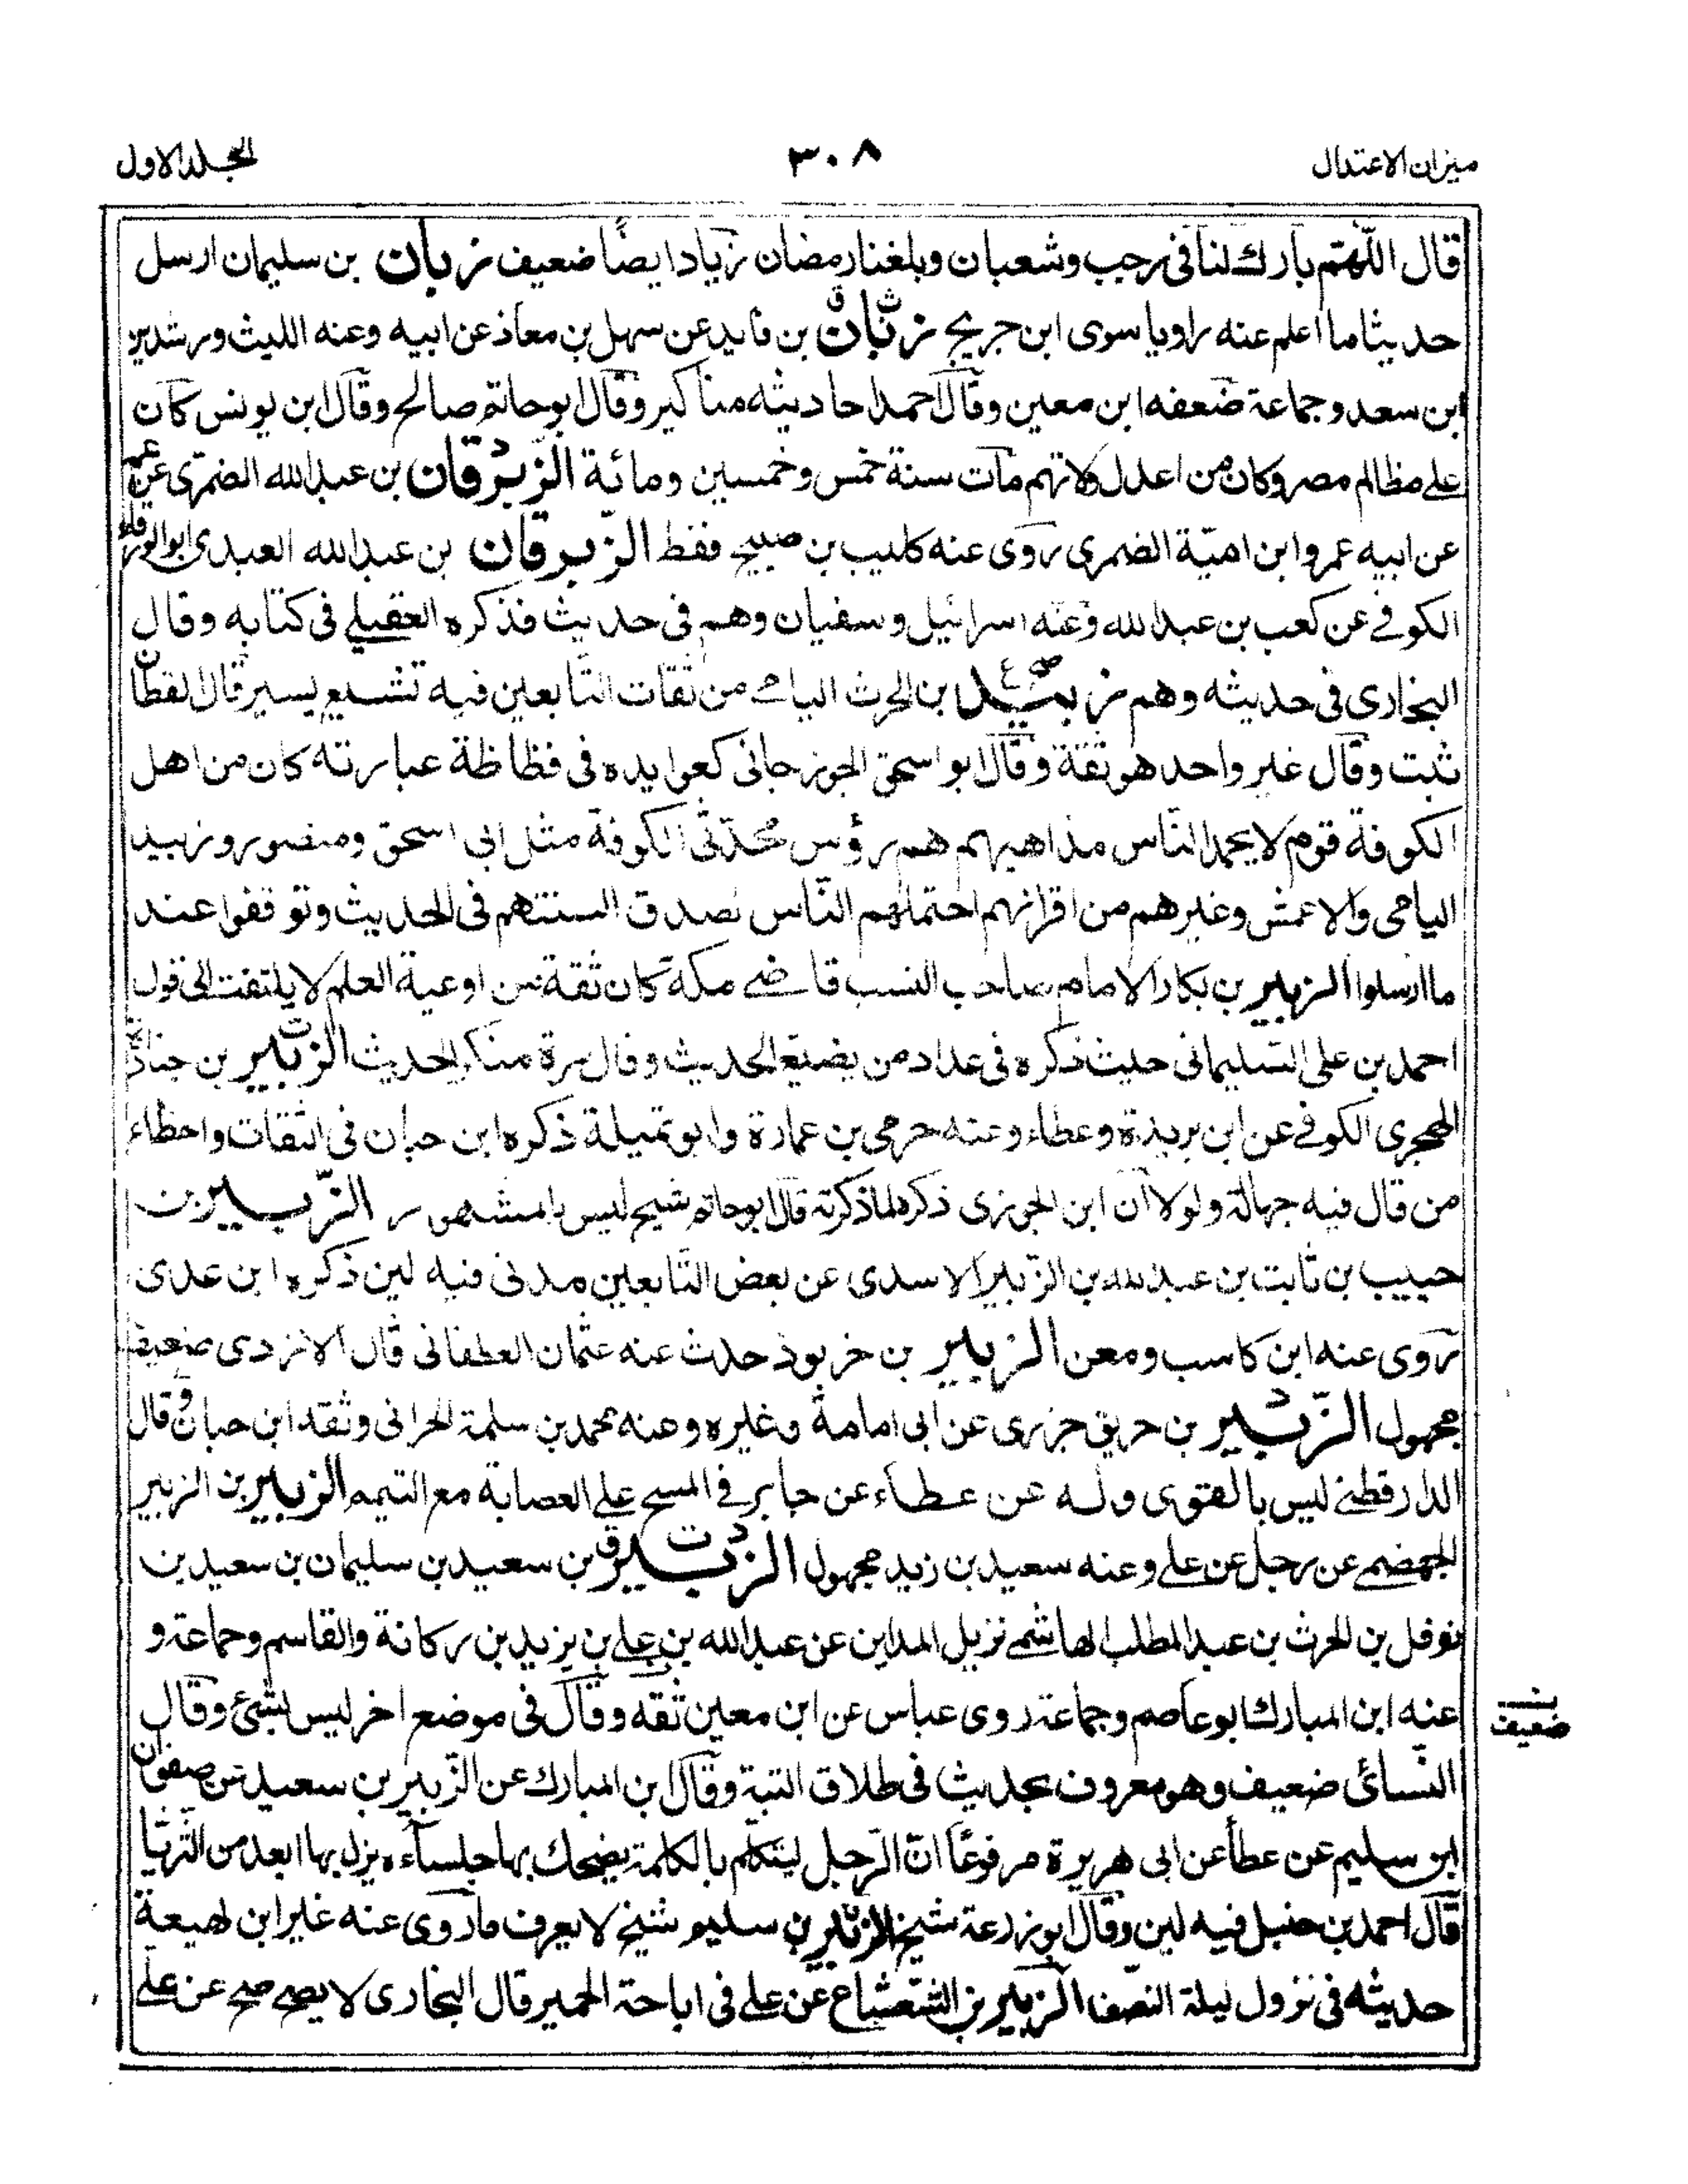 ميزان الاعتدال ٣٠٨ الجلد الاول
قال اللهم بارك لنا فى رجب وشعبان وبلغنا رمضان زياد ايضًا ضعيف زبان بن سليمان ارسل
حديثا ما اعلم عنه راويا سوى ابن جريج زبّان بن فايد عن سهل بن معاذ عن ابيه وعنه الليث ورشدين
ابن سعد وجماعة ضعفه ابن معين وقال احمد احاديثه مناكير وقال ابو حاتم صالح وقال ابن يونس كان
على مظالم مصر وكان من اعدل ولاتهم مات سنة خمس وخمسين ومائة الزبرقان بن عبد الله الضمرى عن عمه
عن ابيه عمرو ابن امية الضمرى روى عنه كليب بن صبيح فقط الزبرقان بن عبد الله العبدى ابو الورقاء
الكوفے عن كعب بن عبد الله وعنه اسرائيل وسفيان وهم فى حديث فذكره العقيلے فى كتابه وقال
البخارى فى حديثه وهم زبيد بن الحرث اليامے من ثقات التابعين فيه تشيع يسير قال القطان
ثبت وقال غير واحد هو ثقة وقال ابو اسحق الجوزجانى كعوايده فى فظاظة عبارته كان من اهل
الكوفة قوم لا يحمد الناس مذاهبهم هم رؤس محدّثى الكوفة مثل ابى اسحق ومنصور وزبيد
اليامى والاعمش وغيرهم من اقرانهم احتملهم الناس لصدق السنتهم فى الحديث وتوقفوا عند
ما ارسلوا الزبير بن بكار الامام صاحب النسب قاضے مكة كان ثقة من اوعية العلم لا يلتفت الى قول
احمد بن على السليمانى حيث ذكره فى عداد من يضع الحديث وقال مرة منكر الحديث الزبير بن جنادة
الهجرى الكوفے عن ابن بريدة وعطاء وعنه حرمى بن عمارة وابو تميلة ذكره ابن حبان فى الثقات واخطاء
من قال فيه جهالة ولولا ان ابن الجوزى ذكره لما ذكرته قال ابو حاتم شيخ ليس بالمشهور الزّبير بن
حبيب بن ثابت بن عبد الله بن الزبير الاسدى عن بعض التابعين مدنى فيه لين ذكره ابن عدى
روى عنه ابن كاسب ومعن الزبير بن خربوذ حدث عنه عثمان الغطفانى قال الازدى ضعيف
مجهول الزّبير بن خريق جزرى عن ابى امامة وغيره وعنه محمد بن سلمة الحرانى وثقه ابن حبان وقال
الدارقطنے ليس بالقوى وله عن عطاء عن جابر فے المسح على العصابة مع التيمم الزبير بن الزبير
الجهضمے عن رجل عن على وعنه سعيد بن زيد مجهول الزبير بن سعيد بن سليمان بن سعيد بن
نوفل بن الحرث بن عبد المطلب الهاشمے نزيل المداين عن عبد الله بن على بن يزيد بن ركانة والقاسم وجماعة و
عنه ابن المبارك ابو عاصم وجماعة روى عباس عن ابن معين ثقه وقال فى موضع اخر ليس بشئ وقال
ضعيف
النسائى ضعيف وهو معروف بحديث فى طلاق البتة وقال ابن المبارك عن الزبير بن سعيد عن صفوان
ابن سليم عن عطأ عن ابى هريرة مرفوعًا انّ الرجل ليتكلم بالكلمة يضحك بها جلسآءه ينزل بها ابعد من الثريّا
قال احمد بن حنبل فيه لين وقال ابو زرعة شيخ الزبير بن سليم شيخ لا يعرف ما روى عنه غير ابن لهيعة
حديثه فى نزول ليلة النصف الزبير بن الشعشاع عن على فى اباحة الحمير قال البخارى لا يصح صح عن على